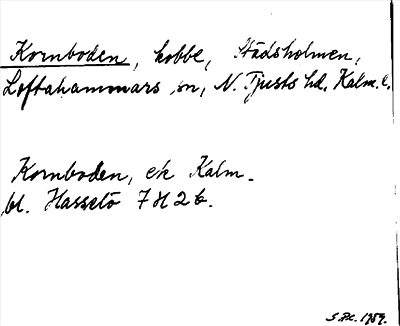 Kornboden, kobbe, Städsholmen,
Loftahammars sn, N. Tjusts hd, Kalm. l.
Kornboden, ek Kalm.
bl. Hasselö 7 H 2 b.
1959.